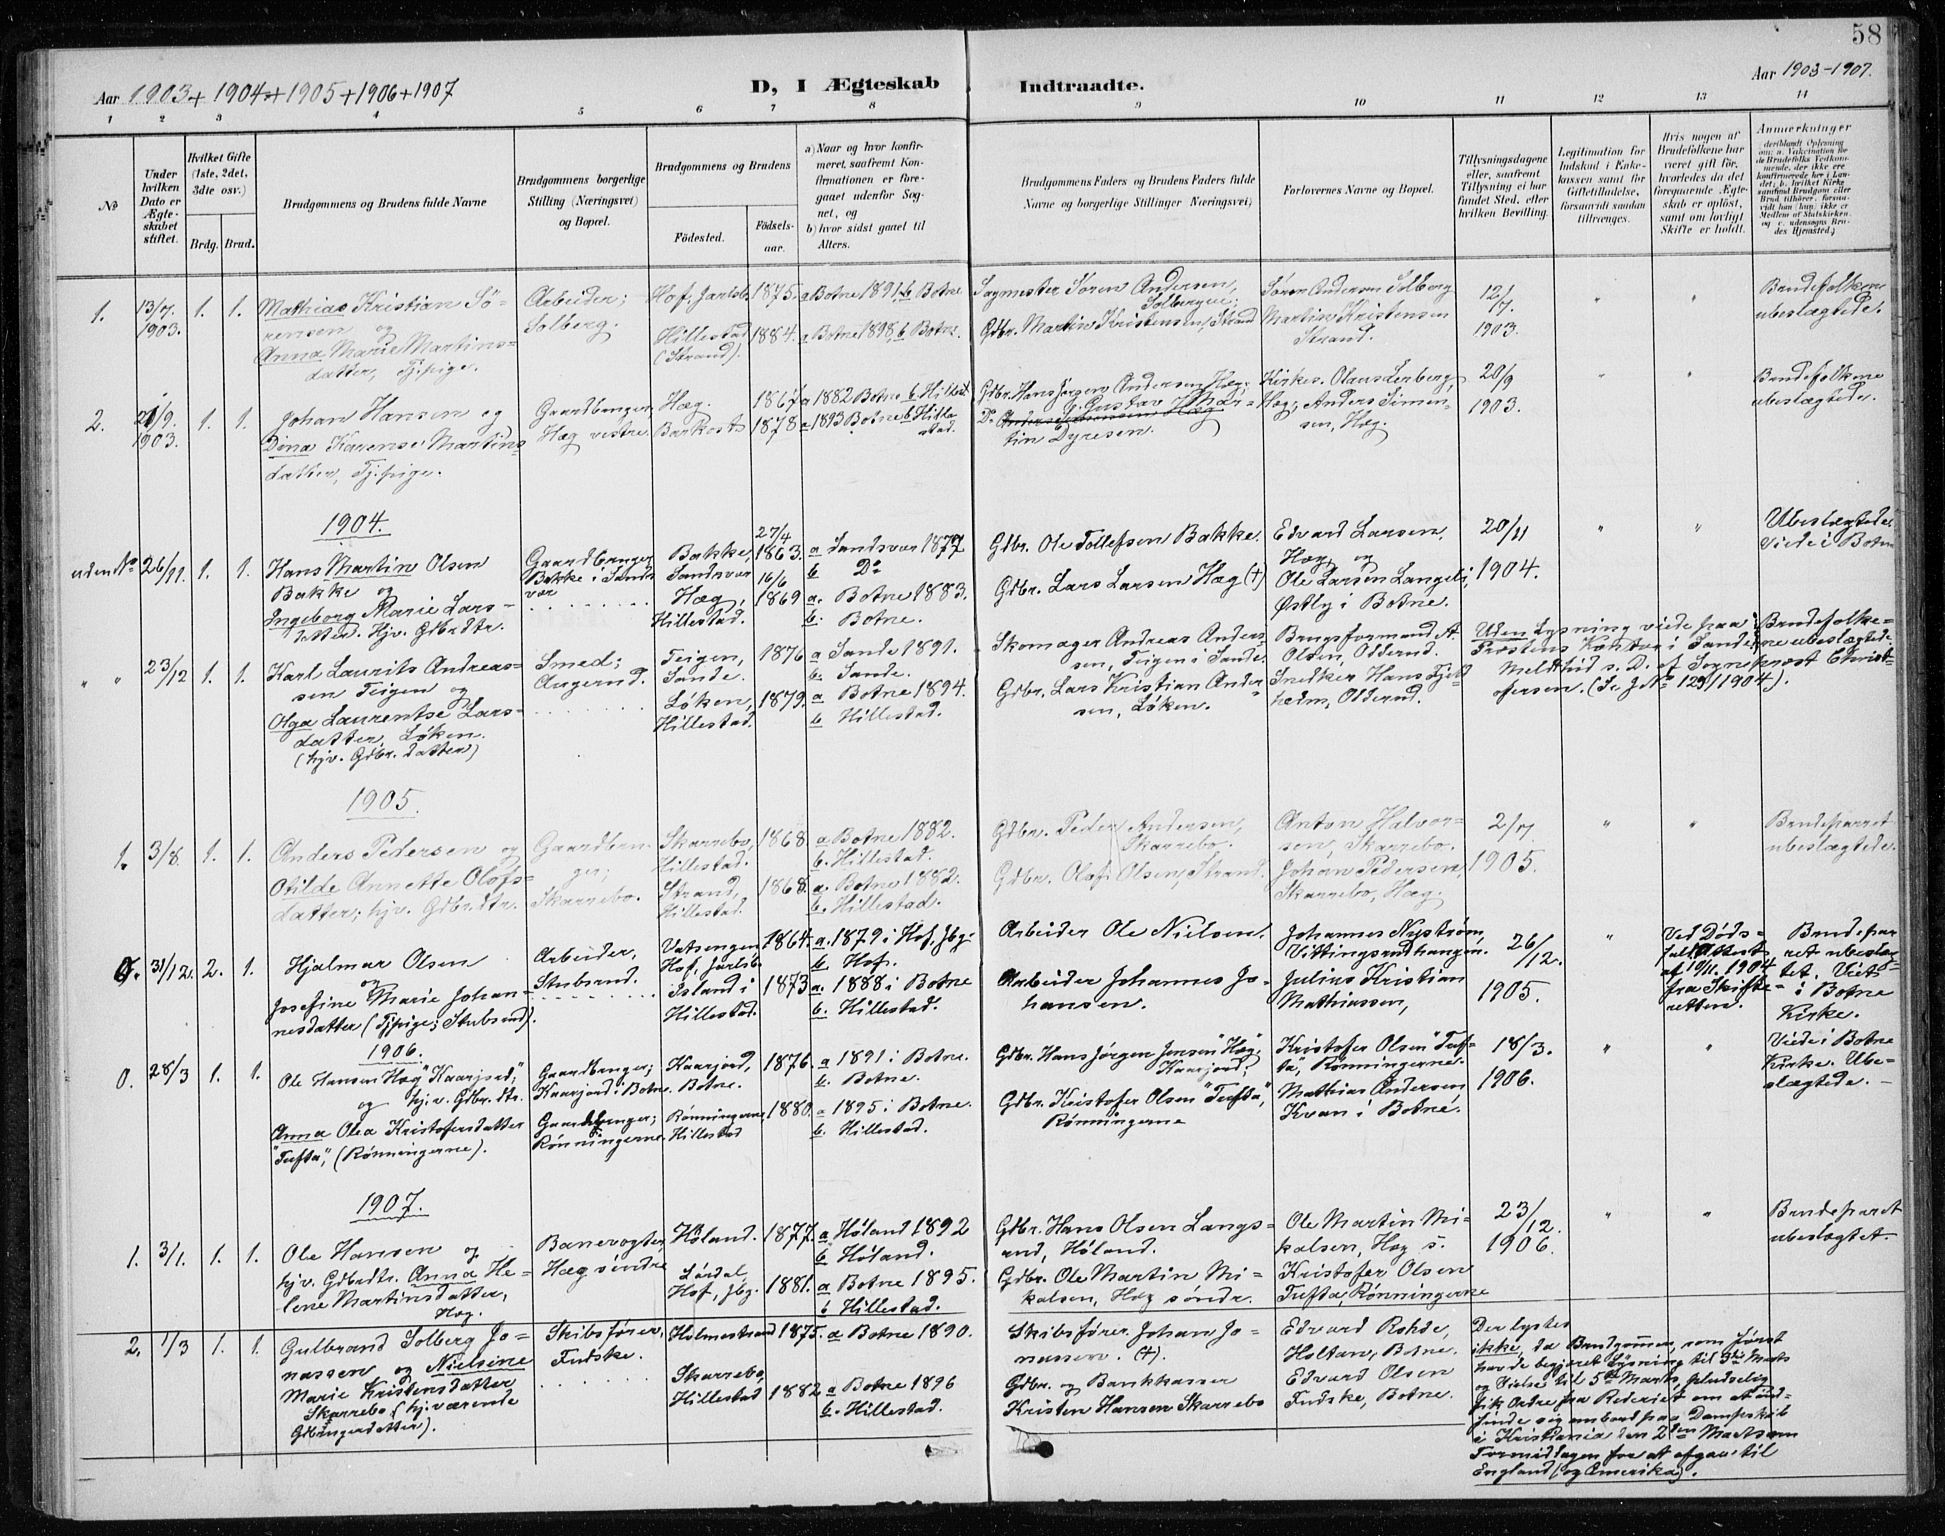 58
Aar 1903 + 1904 + 1905 + 1906 + 1907
D, I Ægteskab
Indtraadte.
Aar 1903-1907.
1 2 3 4 5 6 7 8 9 10 11 12 13 14
No
Under hvilken Dato er Ægteskabet stiftet.
Hvilket Gifte (1ste, 2det, 3die osv.)
Brdg. Brud.
Brudgommens og Brudens fulde Navne
Brudgommens borgerlige Stilling (Næringsvei) og Bopæl.
Brudgommens og Brudens
Fødested.
Fødselsaar.
a) Naar og hvor konfirmeret, saafremt Konfirmationen er foregaaet udenfor Sognet, og
b) hvor sidst gaaet til Alters.
Brudgommens Faders og Brudens Faders fulde Navne og borgerlige Stillinger Næringsvei)
Forlovernes Navne og Bopæl.
Tillysningsdagene eller, saafremt Tillysning ei har fundet Sted, efter hvilken Bevilling.
Legitimation for Indskud i Enkekassen samt for Giftetilladelse, forsaavidt saadan tiltrænges.
Hvis nogen af Brudefolkene har været gift før, hvorledes da det foregaaende Ægteskab er opløst, samt om lovligt Skifte er holdt.
Anmerkninger
1. 13/7 1903. 1. 1.
Mathias Kristian Sörensen og
Anna Marie Martinsdatter, Tj.pige.
Arbeider; Solberg.
Hof, Jarlsb. 1875. a Botne 1891, b Botne
Hillestad (Strand). 1884. a Botne 1898, b Botne.
Sagmester Søren Andersen, Solberg
Gdbr. Martin Kristensen, Strand
Søren Andersen Solberg
Martin Kristensen Strand.
12/7 1903.
" "
Brudefolkene ubeslægtede.
2. 21/9 1903. 1. 1.
Johan Hansen og
Dina Karense Martinsdatter, Tj.pige.
Gaardbruger, Hæg vestre.
Hæg. 1867 a 1882 Botne b Hillest
Barkost 1878 a 1893 Botne b Hillestad.
Gdbr. Hans Jørgen Andersen Hæg;
Do Gustav Martin Dyresen.
Kirkes. Olaus Lerberg, Hæg; Anders Simensen, Hæg.
20/9 1903.
" "
Brudefolkene ubeslægtede.
1904.
uden No 26/11. 1. 1.
Hans Martin Olsen Bakke og
Ingeborg Marie Larsdatter. Hjv. Gdbrdtr.
Gaardbruger Bakke i Sandsvær
Bakke, Sandsvær 27/4 1863. a Sandsvær 1877 b Do
Hæg, Hillestad. 16/6 1869 a. Botne 1883. b. Botne.
Gdbr. Ole Tollefsen Bakke.
Gdbr. Lars Larsen Hæg (+)
Edvard Larsen, Hæg og
Ole Larsen Langeli, Østby i Botne.
20/11 1904.
" "
Ubeslægtede Viede i Botne
" " 23/12 1. 1.
Karl Laurits Andreassen Teigen og
Olga Laurentse Larsdatter, Løken.
(hjv. Gdbr. datter)
Smed; Angerud.
Teigen, Sande. 1876 a Sande 1891. b. Sande.
Løken, Hillestad. 1879. a Botne 1894. b Hillestad.
Skomager Andreas Andersen, Teigen i Sande.
Gdbr. Lars Kristian Andersen, Løken.
Brugsformand A. Olsen, Odderud.
Snedker Hans Fjeldheim, Odderud.
Uden Lysning viede paa Provstens Kontor i Sande;
Meldt hid s. D. af Sogneprost Christoffersen. (Se J.No 129/1904).
Brudefolkene ubeslægtede
1905.
1. 3/8. 1. 1.
Anders Pedersen og
Otilde Annette Olofsdatter; hjv. Gdbr.dtr.
Gaardbruger; Skarrebo.
Skarrebo, Hillestad. 1868. a Botne 1882. b. Hillestad.
Strand, Hillestad. 1868. a. Botne 1882. b. Hillestad.
Gdbr. Peder Andersen, Skarrebo.
Gdbr. Olof Olsen, Strand.
Anton Halvorsen, Skarrebo.
Johan Pedersen, Skarrebo, Hæg.
2/7 1905.
" "
Brudeparret ubeslægtede.
31/12. 2. 1.
Hjalmar Olsen og
Josefine Marie Johannesdatter (Tjpige; Stubsrud).
Arbeider, Stubsrud.
Hof, Jarlsb. 1864. a. 1879 i Hof, Jbg. b. Hof.
Island i Hillestad. 1873 a. 1888 i Botne b. Hillestad.
Arbeider Ole Nielsen.
Arbeider Johannes Johansen.
Johannes Nystrøm, Vittingsrudhangen.
Julius Kristian Mathiassen,
26/12. 1905.
"
Ved Dødsfald, Attest af 19/11. 1904 fra Skifteretten.
Brudeparret ubeslægtet. Viet i Botne Kirke.
1906.
0. 28/3 1. 1.
Ole Hansen Hæg "Kaarjord," og hj.v. Gdbr. dtr.
Anna Olea Kristofersdatter "Tufta", (Rønningerne).
Gaardbruger; Kaarjord i Botne.
Gaardbruger; Rønningerne.
Kaarjord, Botne. 1876. a 1891 i Botne. b. Botne.
Rønningerne, Hillestad 1880. a 1895 i Botne. b. Hillestad.
Gdbr. Hans Jørgen Jensen "Hæg" Kaarjord,
Gdbr. Kristofer Olsen "Tufta", Rønningerne
Kristofer Olsen "Tufta", Rønningerne.
Mathias Andersen, Kvan i Botne.
18/3. 1906.
" "
Viede i Botne Kirke. Ubeslægtede. –
1907.
1. 3/1. 1. 1.
Ole Hansen og
hjv. Gdbrdtr. Anna Helene Martinsdatter, Hæg.
Banevogter, Hæg søndre
Høland. 1877. a Høland 1892 b Høland.
Sørdal, Hof, Jbg. 1881. a Botne 1895. b Hillestad.
Gdbr. Hans Olsen Langsrud, Høland.
Gdbr. Ole Martin Mikalsen, Hæg søndr.
Ole Martin Mikalsen, Hæg s.
Kristofer Olsen Tufta, Rønningerne
23/12. 1906.
" "
Brudeparet ubeslægtet.
2. 1/3 1. 1.
Gulbrand Solberg Jonassen og Nielsine
Marie Kristensdatter Skarrebo (hj.værende Gdbrugerdatter).
Skibsfører, Fudske.
Holmestrand 1875. a Botne 1890.
Skarrebo, Hillestad 1882 a Botne 1896 b. Hillestad.
Skibsfører Johan Jonassen. (+).
Gdbr. og Bankkasser Kristen Hansen Skarrebo
Edvard Rohde, Holtan, Botne.
Edvard Olsen Fudske, Botne.
Der lystes ikke, da Brudgommen, som først
havde begjæret Lysning til 3die Marts
og Vielse til 5te Marts, pludselig
fik Ordre fra Rederiet om at indfinde sig ombord paa Dampskib
i Kristiania den 2den Marts om
Formiddagen for at afgaa til
England (og Amerika).